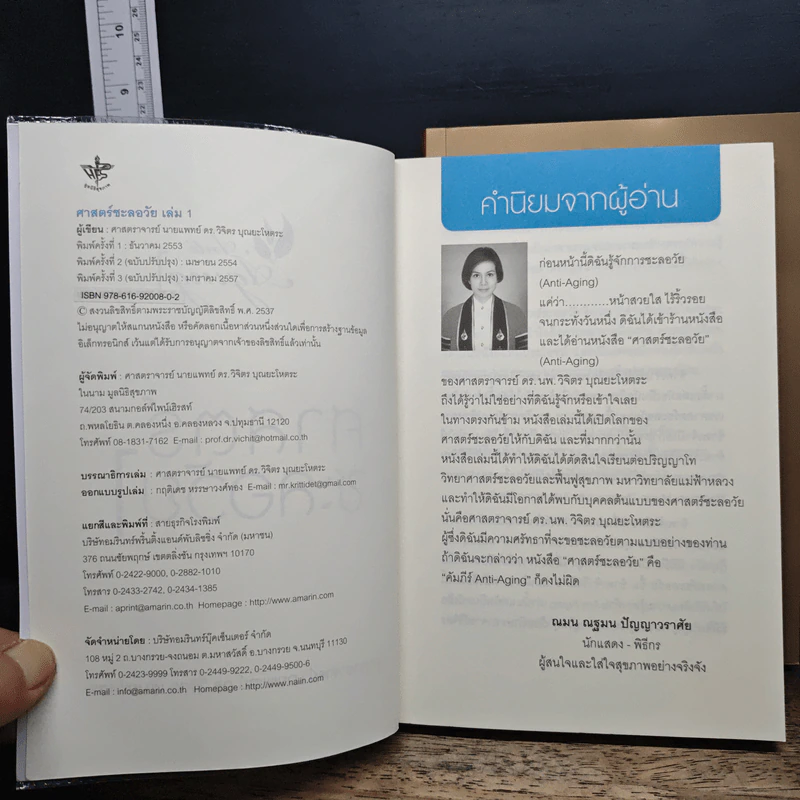 ศาสตร์ชะลอวัย เล่ม 1
ผู้เขียน : ศาสตราจารย์ นายแพทย์ ดร. วิจิตร บุณยะโหตระ
พิมพ์ครั้งที่ 1 : ธันวาคม 2553
พิมพ์ครั้งที่ 2 (ฉบับปรับปรุง) : เมษายน 2554
พิมพ์ครั้งที่ 3 (ฉบับปรับปรุง) : มกราคม 2557
ISBN 978-616-92008-0-2
© สงวนลิขสิทธิ์ตามพระราชบัญญัติลิขสิทธิ์ พ.ศ. 2537
ไม่อนุญาตให้สแกนหนังสือ หรือคัดลอกเนื้อหาส่วนหนึ่งส่วนใดเพื่อการสร้างฐานข้อมูล
อิเล็กทรอนิกส์ เว้นแต่ได้รับการอนุญาตจากเจ้าของลิขสิทธิ์แล้วเท่านั้น
ผู้จัดพิมพ์ : ศาสตราจารย์ นายแพทย์ ดร. วิจิตร บุณยะโหตระ
ในนาม มูลนิธิสุขภาพ
74/203 สนามกอล์ฟไพน์เฮิรสท์
ถ.พหลโยธิน ต.คลองหนึ่ง อ.คลองหลวง จ.ปทุมธานี 12120
โทรศัพท์ 08-1831-7162 E-mail : prof.dr.vichit@hotmail.co.th
บรรณาธิการเล่ม : ศาสตราจารย์ นายแพทย์ ดร. วิจิตร บุณยะโหตระ
ออกแบบรูปเล่ม : กฤติเดช หรรษาวงศ์ทอง E-mail : mr.krittidet@gmail.com
แยกสีและพิมพ์ที่ : สายธุรกิจโรงพิมพ์
บริษัทอมรินทร์พริ้นติ้งแอนด์พับลิชชิ่ง จำกัด (มหาชน)
376 ถนนชัยพฤกษ์ เขตตลิ่งชัน กรุงเทพฯ 10170
โทรศัพท์ 0-2422-9000, 0-2882-1010
โทรสาร 0-2433-2742, 0-2434-1385
E-mail : aprint@amarin.co.th Homepage : http://www.amarin.com
จัดจำหน่ายโดย : บริษัทอมรินทร์บุ๊คเซ็นเตอร์ จำกัด
108 หมู่ 2 ถ.บางกรวย-จงถนอม ต.มหาสวัสดิ์ อ.บางกรวย จ.นนทบุรี 11130
โทรศัพท์ 0-2423-9999 โทรสาร 0-2449-9222, 0-2449-9500-6
E-mail : info@amarin.co.th Homepage : http://www.naiin.com
คำนิยมจากผู้อ่าน
ก่อนหน้านี้ดิฉันรู้จักการชะลอวัย
(Anti-Aging)
แค่ว่า............หน้าสวยใส ไร้ริ้วรอย
จนกระทั่งวันหนึ่ง ดิฉันได้เข้าร้านหนังสือ
และได้อ่านหนังสือ "ศาสตร์ชะลอวัย"
(Anti-Aging)
ของศาสตราจารย์ ดร. นพ. วิจิตร บุณยะโหตระ
ถึงได้รู้ว่าไม่ใช่อย่างที่ดิฉันรู้จักหรือเข้าใจเลย
ในทางตรงกันข้าม หนังสือเล่มนี้ได้เปิดโลกของ
ศาสตร์ชะลอวัยให้กับดิฉัน และที่มากกว่านั้น
หนังสือเล่มนี้ได้ทำให้ดิฉันได้ตัดสินใจเรียนต่อปริญญาโท
วิทยาศาสตร์ชะลอวัยและฟื้นฟูสุขภาพ มหาวิทยาลัยแม่ฟ้าหลวง
และทำให้ดิฉันมีโอกาสได้พบกับบุคคลต้นแบบของศาสตร์ชะลอวัย
นั่นคือศาสตราจารย์ ดร. นพ. วิจิตร บุณยะโหตระ
ผู้ซึ่งดิฉันมีความศรัทธาที่จะขอชะลอวัยตามแบบอย่างของท่าน
ถ้าดิฉันจะกล่าวว่า หนังสือ "ศาสตร์ชะลอวัย" คือ
"คัมภีร์ Anti-Aging" ก็คงไม่ผิด
ณมน ณฐมน ปัญญาวราศัย
นักแสดง - พิธีกร
ผู้สนใจและใส่ใจสุขภาพอย่างจริงจัง
10
9
26
25
24
23
22